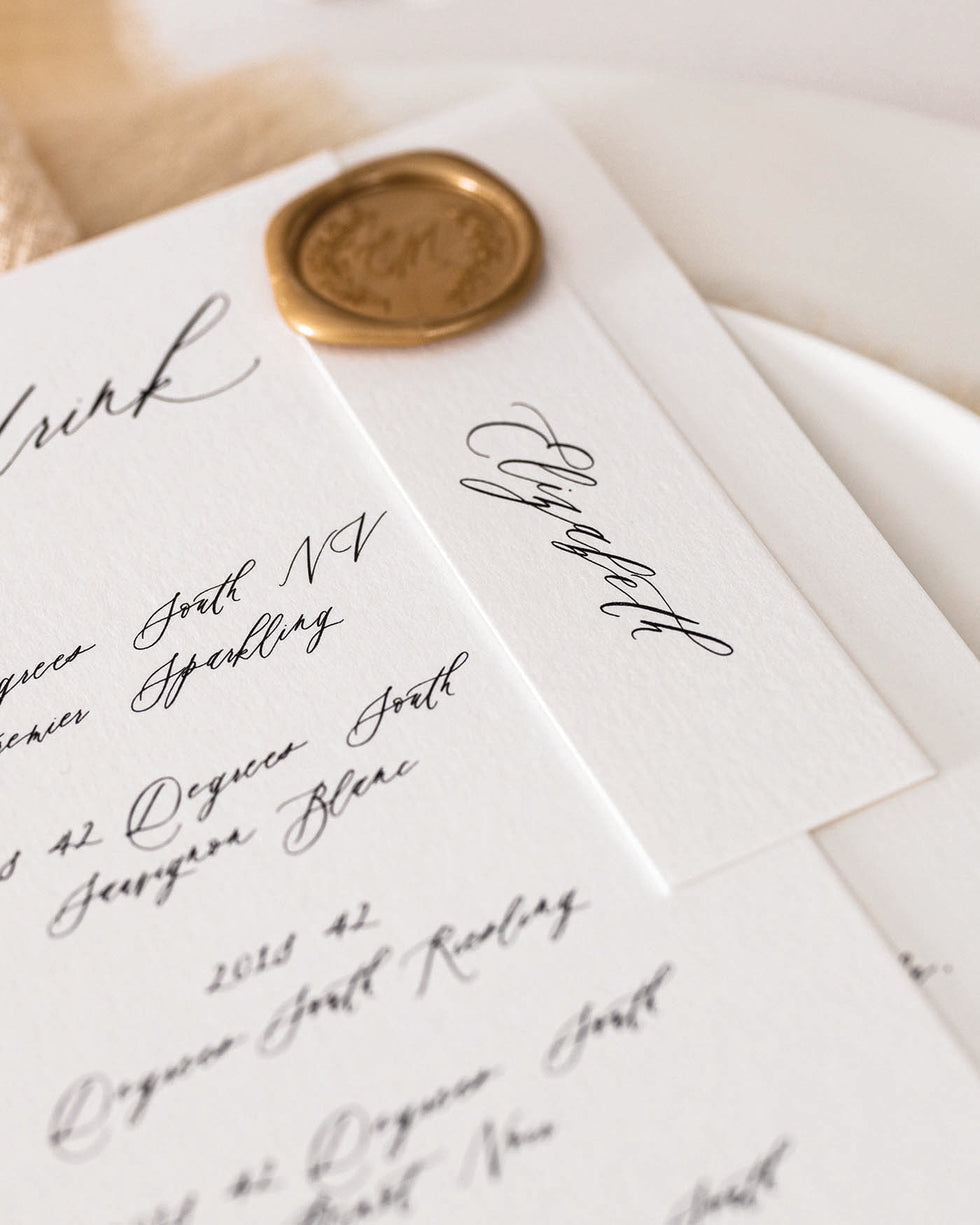 EM
Elizabeth
drink
grees South NV
emier Sparkling
42 Degrees South
Sauvignon Blanc
42
Degrees South Riesling
42 Degrees South
Pinot Noir
South